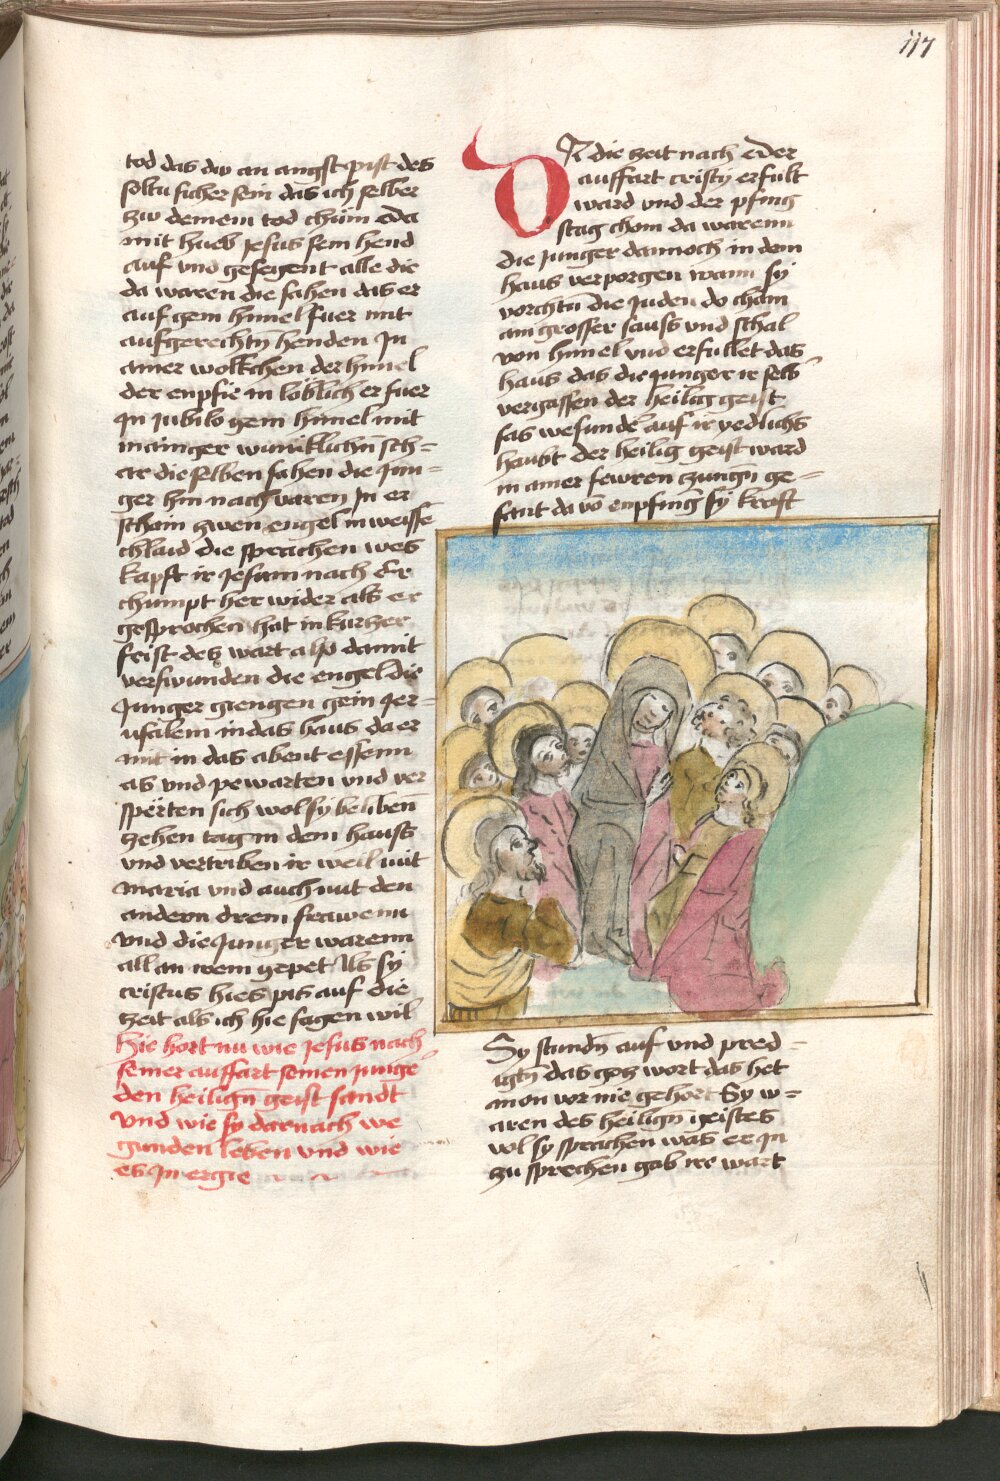 117
tod das dw an angst pist des
soltu sicher sein das ich selber
zw deinem tod chum eda
mit hueb Jesus sein hend
auf vnd gesegent alle die
da waren die sahen das er
auf gem himel fuer mit
aufgerechtn henden In
ainer wolkchen der himel
der enpfie in loblich er fuer
In Jubilo gem himel mit
mainger wuniklichn sch=
ar die selben sahen die Jun=
ger hin nach varen In er
schain zwen engel in weisse
chlaid die sprachen wes
kapft ir Jesum nach er
chumpt her wider als er
gesprochen hat in kurzer
frist des wart also damit
verswunden die engel die
Junger giengen gein Jer=
usalem in das haus da er
mit in das abent essenn
as vnd pewarten vnd ver
sperten sich wol sy beliben
zehen tag in dem hauss
vnd vertriben ir weil mit
maria vnd auch mit den
andern drein frawenn
vnd die Junger warenn
all an irem gepet Als sy
cristus hies pis auf die
zeit als ich hie sagen wil
Hie hort nu wie Jesus nach
seiner auffart seinen Junge
den heilign geist sandt
Vnd wie sy darnach we
gunden leben vnd wie
es In ergie
DA die zeit nach eder
auffart cristy erfult
ward vnd der pfing
stag chom da warenn
die Junger dannoch in dem
haus verporgen wann sy
vorchtn die Juden do cham
ain grosser sauss vnd schal
von himel vnd erfullet das
haus das die Junger ir selb
vergassen der heilig geist
sas wesunder auf ir yedlichs
haubt der heilig geist ward
in ainer fewren zungn ge=
sant da vo enpfing sy kraft
Sy stundn auf vnd pred=
igtn das gocz wort das het
man vor nie gehort Sy w=
aren des heilign geistes
vol sy sprachen was er In
zu sprechen gab ire wart